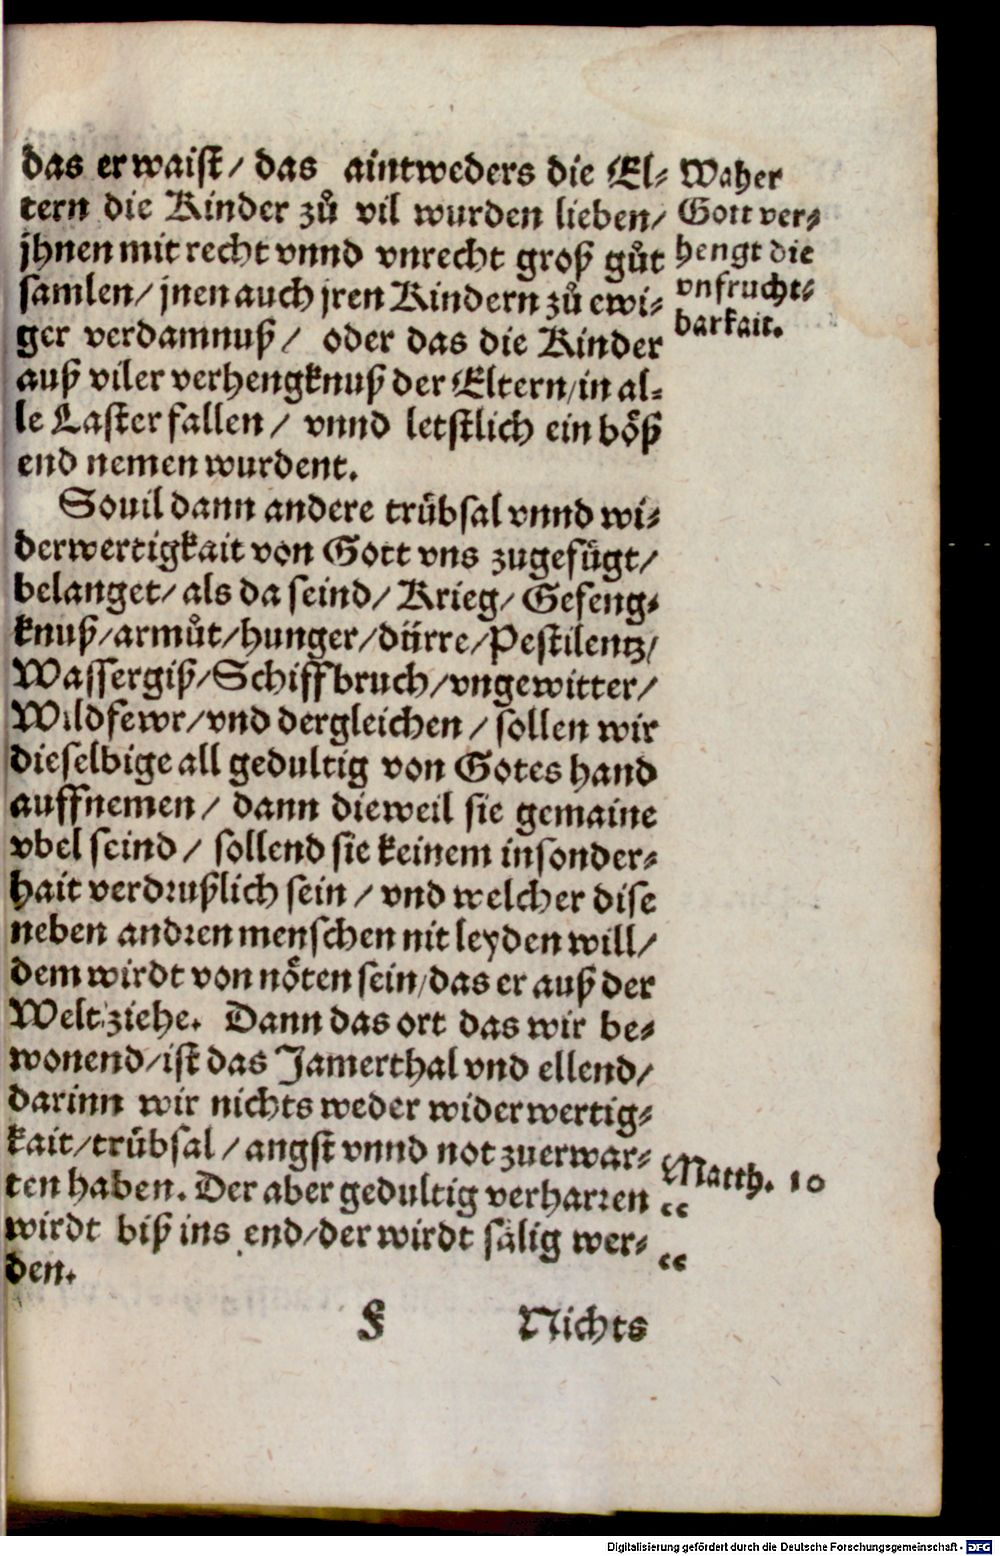 das er waist/ das aintweders die El⸗
tern die Kinder zů vil wurden lieben/
jhnen mit recht vnnd vnrecht groß gůt
samlen/ jnen auch jren Kindern zů ewi⸗
ger verdamnuß/ oder das die Kinder
auß viler verhengknuß der Eltern/in al⸗
le Laster fallen/ vnnd letstlich ein bo᷑ß
end nemen wurdent.
Waher
Gott ver⸗
hengt die
vnfrucht⸗
barkait.
Souil dann andere trübsal vnnd wi⸗
derwertigkait von Gott vns zugefügt/
belanget/ als da seind/ Krieg/ Gefeng⸗
knuß/armůt/hunger/dürre/Pestilentz/
Wassergiß/Schiffbruch/vngewitter/
Wildfewr/vnd dergleichen/ sollen wir
dieselbige all gedultig von Gotes hand
auffnemen/ dann dieweil sie gemaine
vbel seind/ sollend sie keinem insonder⸗
hait verdrußlich sein/ vnd welcher dise
neben andren menschen nit leyden will/
dem wirdt von nöten sein/das er auß der
Welt ziehe. Dann das ort das wir be⸗
wonend/ist das Jamerthal vnd ellend/
darinn wir nichts weder widerwertig⸗
kait/trübsal/angst vnnd not zuerwar⸗
ten haben. Der aber gedultig verharren
wirdt biß ins end/der wirdt sälig wer⸗
den.
Matth. 10
“
“
§ Nichts
Digitalisierung gefördert durch die Deutsche Forschungsgemeinschaft - DFG